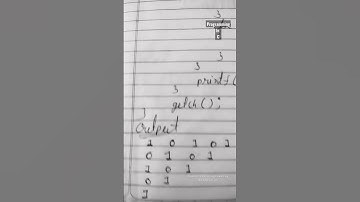 Programming
in
C
}
}
}
}
printf(
}
getch();
}
Output
1 0 1 0 1
0 1 0 1
1 0 1
0 1
1